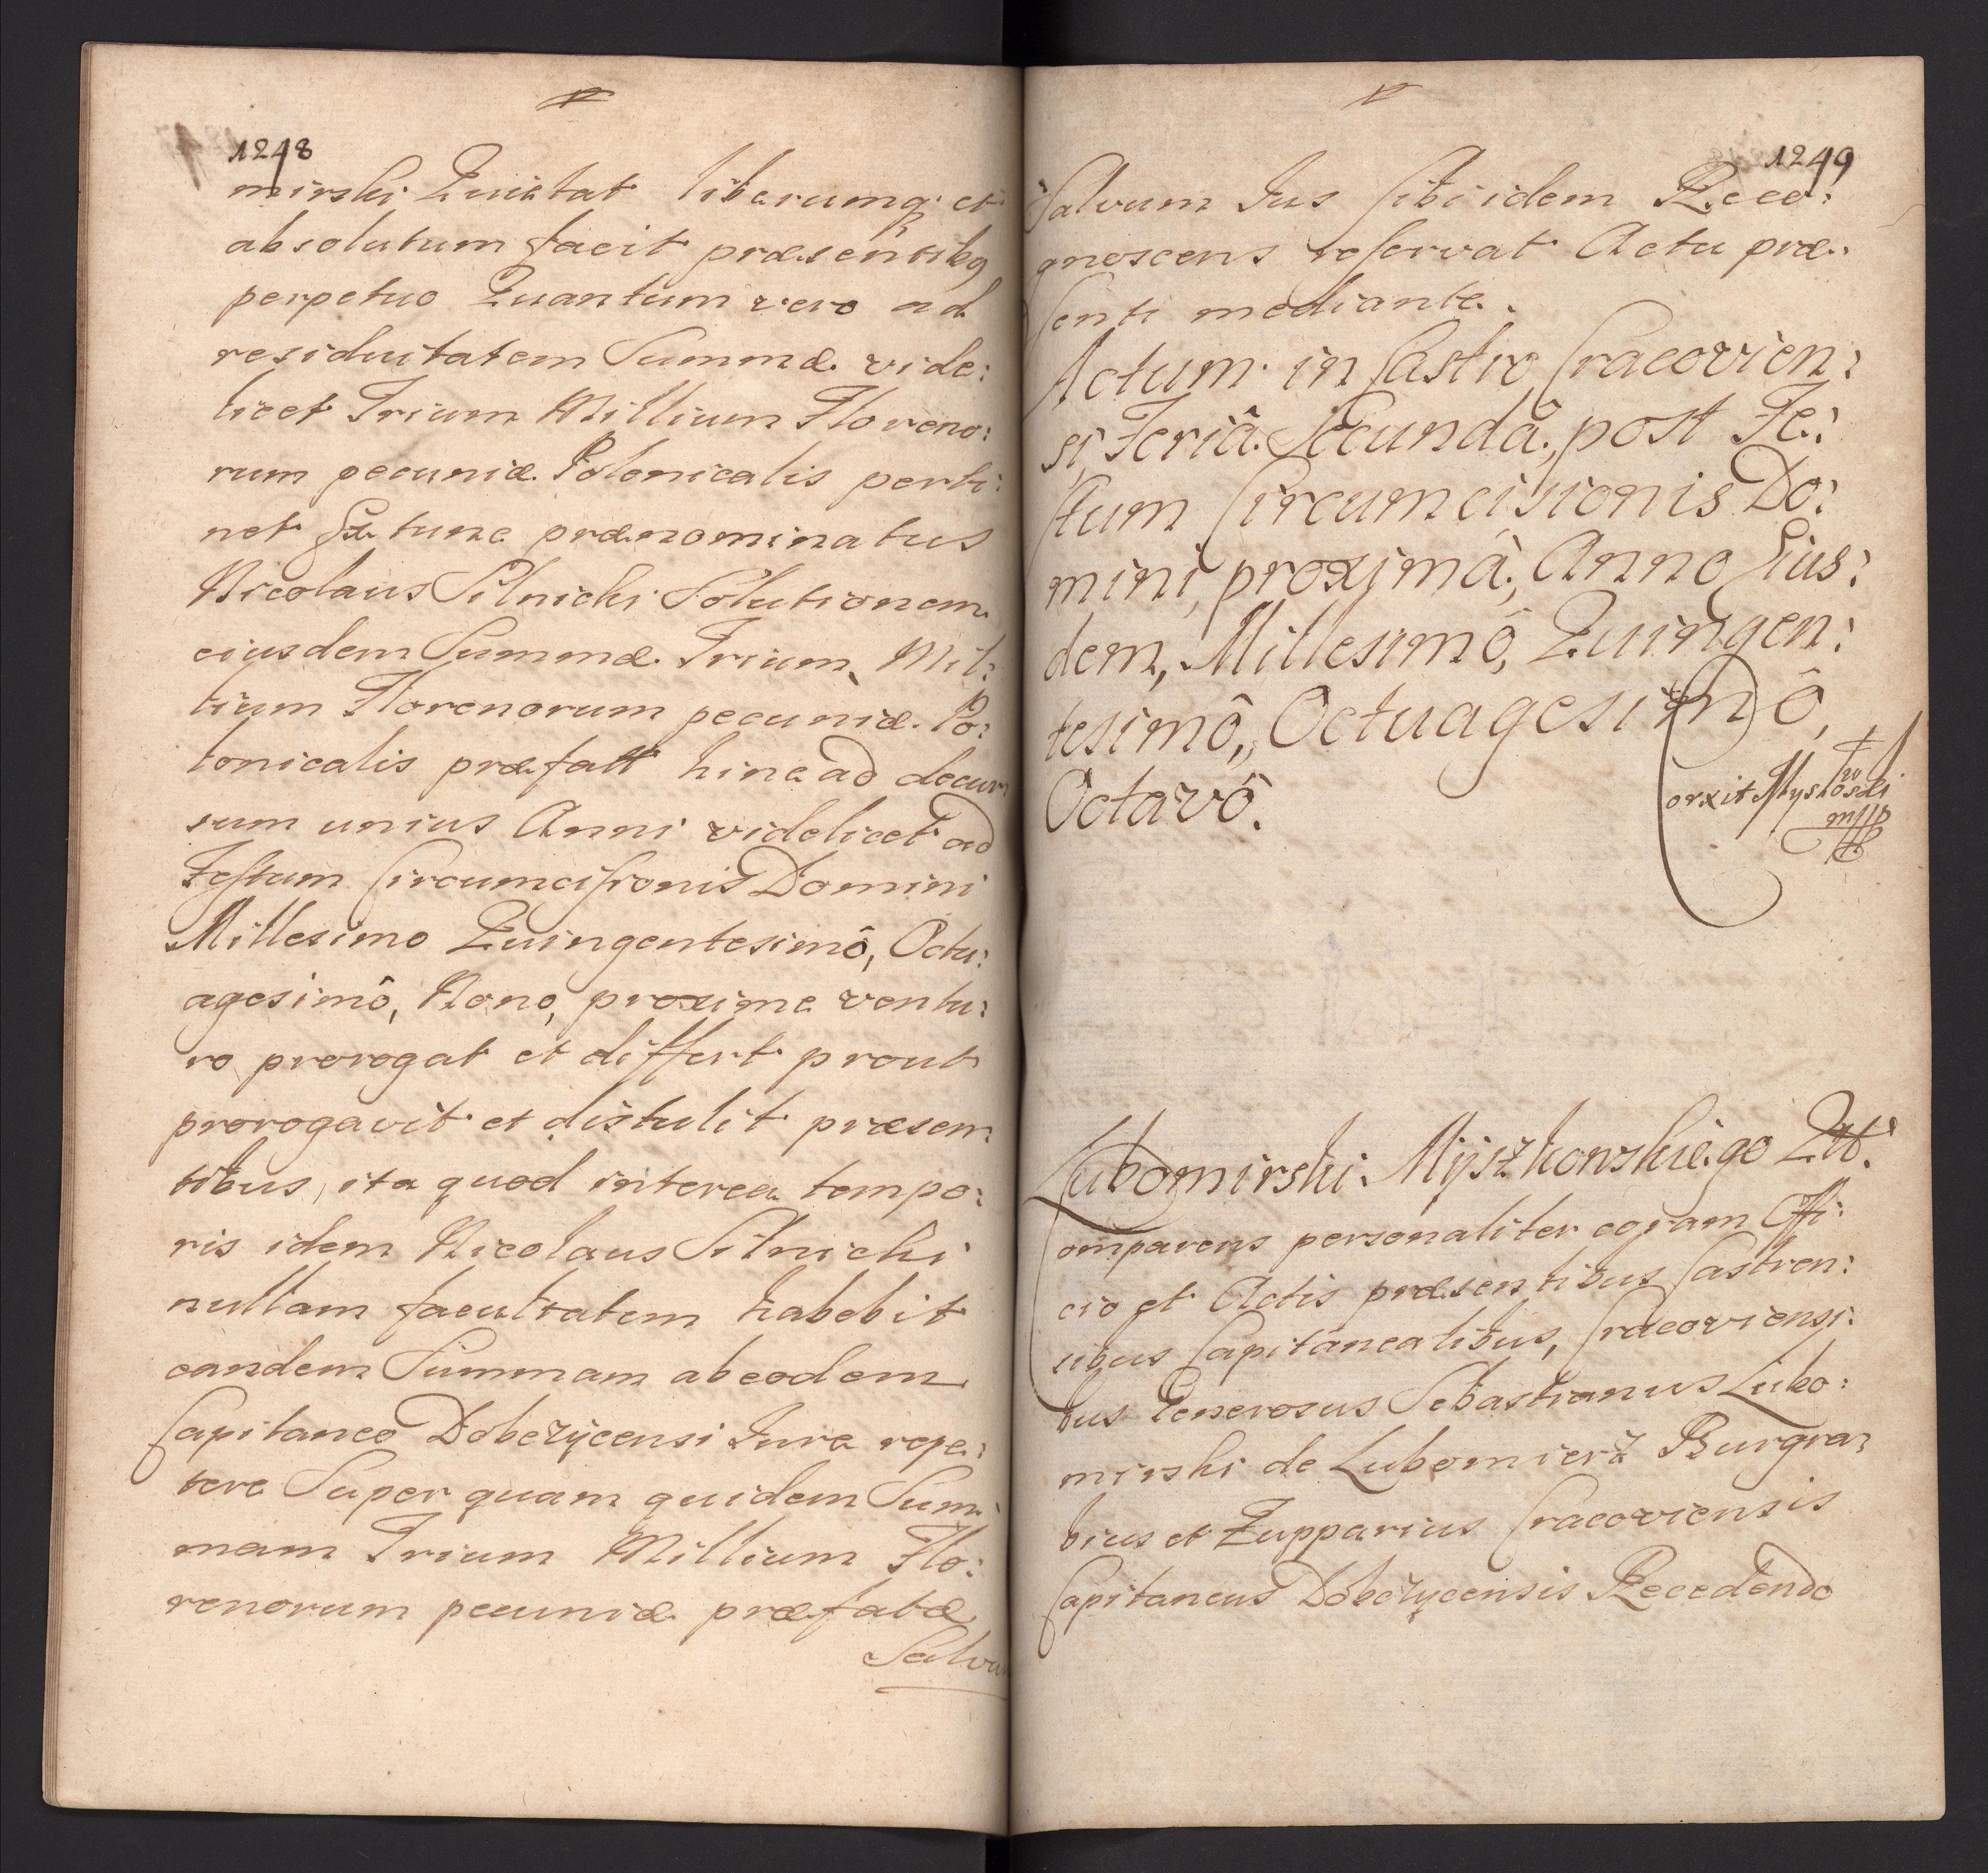 1248
mirski Quietat liberumq; et
absolutum facit præsentibq
perpetuo Quantum vero ad
residuitatem Summæ vide:
licet Trium Millium Floreno:
rum pecuniæ Polonicalis perti:
net Ex tunc prænominatus
Nicolaus Silnicki Solutionem
eiusdem Summæ Trium Mil:
lium Florenorum pecuniæ Po:
lonicalis præfatt hinc ad decur
sum unius Anni videlicet ad
Festum Circumcisionis Domini
Millesimo Quingentesimô, Octu:
agesimô, Nono, proxime ventu:
ro prorogat et differt prout
prorogavit et distulit præsen:
tibus, ita quod interea tempo:
ris idem Nicolaus Silnicki
nullam facultatem habebit
eandem Summam ab eodem
Capitaneo Dobczÿcensi Jure repe:
tere Super quam quidem Sum:
mam Trium Millium Flo:
renorum pecuniæ præfatæ
Salvu
1249
Salvum Jus sibi idem Reco:
gnoscens reservat Actu præ:
senti mediante.
Actum in Castro Cracovien:
si, Feriâ Secundâ, post Fe:
stum Circumcisionis Do:
mini, proximâ, Anno Eius:
dem, Millesimô, Quingen:
tesimô, Octuagesimô,
Octavô.
Lubomirski Mÿszkowskiego Qtt.
Comparens personaliter coram Offi:
cio et Actis præsentibus Castren:
sibus Capitanealibus, Cracoviensi:
bus Generosus Sebastianus Lubo:
mirski de Lubomierz Burgra:
bius et Zupparius Cracoviensis
Capitaneus Dobczycensis Recedendo